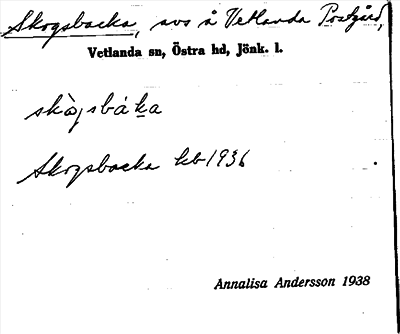 Skogsbacka, avs å Vetlanda Postgård,
Vetlanda sn, Östra hd, Jönk. l.
skògsbáka
Skogsbacka kb 1936
Annalisa Andersson 1938